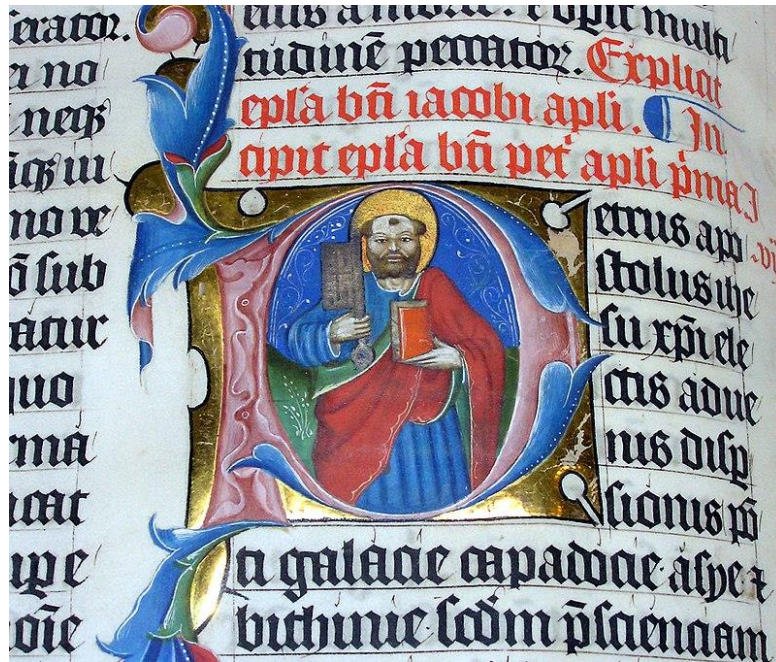 serator.
no
neqꝫ
no ve
sub
atur
quo
rma
icat
eius a morte. ⁊ opit multi
tudinē peccator. Explicit
epl'a bt̄i iacobi apl̄i. In
cipit epl'a bt̄i pet᷑ apl̄i p̄ma
Petrus apo
stolus ihe
su xp̄i ele
ctis adue
nis disp
sionis pō
ti galacie capadocie asye ⁊
bithinie scd̄m p̄scienciam